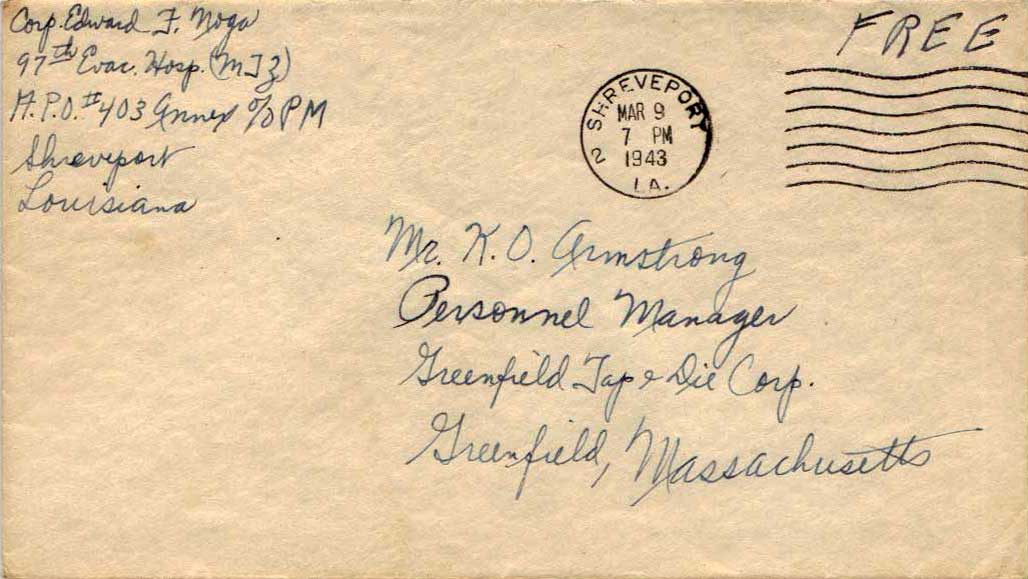 Corp. Edward F. Noga
97th Evac. Hosp. (MTZ)
A.P.O. # 403 Annex c/o PM
Shreveport
Louisiana
FREE
SHREVEPORT
MAR 9
7 PM
1943
LA.
2
Mr. K. O. Armstrong
Personnel Manager
Greenfield Tap & Die Corp.
Greenfield, Massachusetts